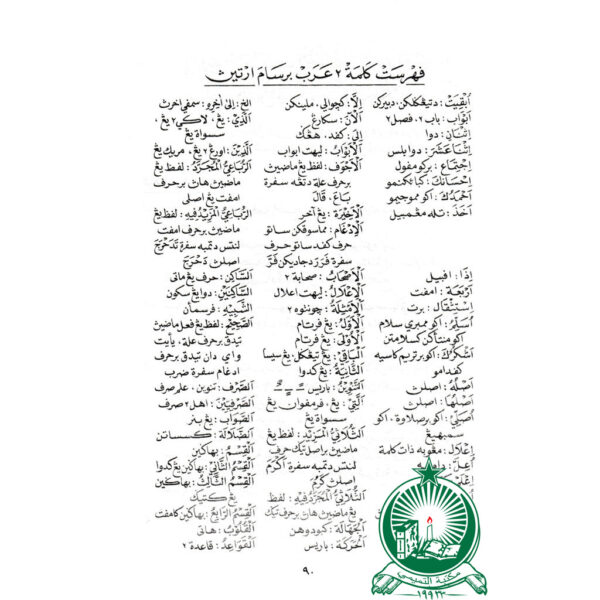 فهرست كلمة ٢ عرب برسام ارتيڽ
أبقيت : دتيڠݢلكن، دبيركن
أبواب : باب ٢، فصل ٢
إثنان : دوا
إثنا عشر : دوابلس
اجتماع : بركومفول
أحمدك : اكو مموجيمو
أخذ : تله مڠمبيل
إذا : افبيل
أربعة : امفت
استثقال : برت
أسلم : اكو ممبري سلام
أشكرك : اكو برتريم كاسيه
كفدامو
أصله : اصلڽ
أصلها : اصلڽ
أصلي : اكو برصلاوة، اكو
سمبهيڠ
إعلال : مڠوبه ذات كلمة
إلا : كچوالي، ملينكن
الآن : سكارڠ
إلى : كفد، هڠݢ
الأبواب : ليهت ابواب
الأجوف : لفظ يڠ ماضيڽ
برحرف علة دتڠه سفرة
باع، قال
الأخيرة : يڠ آخر
الإدغام : ماسوقكن ساتو
حرف كفد ساتو حرف
سفرة فرر دجاديكن فرّ
الأصحاب : صحابة ٢
الإعلال : ليهت اعلال
الأمثلة : چونتوه ٢
الأول : يڠ فرتام
الأولى : يڠ فرتام
الباقي : يڠ تيڠݢل، يڠ سيسا
الثانية : يڠ كدوا
التنوين : باريس ـً ـٍ ـٌ
التي : يڠ، فرمفوان يڠ
سسواة يڠ
الثلاثي المزيد : لفظ يڠ
ماضيڽ براصل تيݢ حرف
لنتس دتمبه سفرة أكرم
اصلڽ كرم
الثلاثي المجرد فيه : لفظ
يڠ ماضيڽ هاڽ برحرف تيݢ
الجهالة : كبودوهن
الحركة : باريس
الخ : إلى آخره، سمفي اخرڽ
الذي : يڠ، لاكي ٢ يڠ،
سسواة يڠ
الذين : اورڠ ٢ يڠ، مريك يڠ
الرباعي المجرد : لفظ يڠ
ماضيڽ هاڽ برحرف
امفت يڠ اصلي
الرباعي المزيد فيه : لفظ يڠ
ماضيڽ برحرف امفت
لنتس دتمبه سفرة تدحرج
اصلڽ دحرج
الساكن : حرف يڠ ماتي
الساكنين : دوا يڠ سكون
الشبيه : فرسمأن
الصحيح : لفظ يڠ فعل ماضيڽ
تيدق برحرف علة، يأيت
واي دان تيدق برحرف
ادغام سفرة ضرب
الصرف : تنوين، علم صرف
الصرفيين : اهل ٢ صرف
الصواب : يڠ بنر
الضلالة : كسساتن
القسم : بهاݢين
القسم الثاني : بهاݢين يڠ كدوا
القسم الثالث : بهاݢين
يڠ كتيݢ
القسم الرابع : بهاݢين كامفت
القلوب : هاتي
القواعد : قاعدة ٢
٩٠
مكتبة التميمي
١٩٩٣